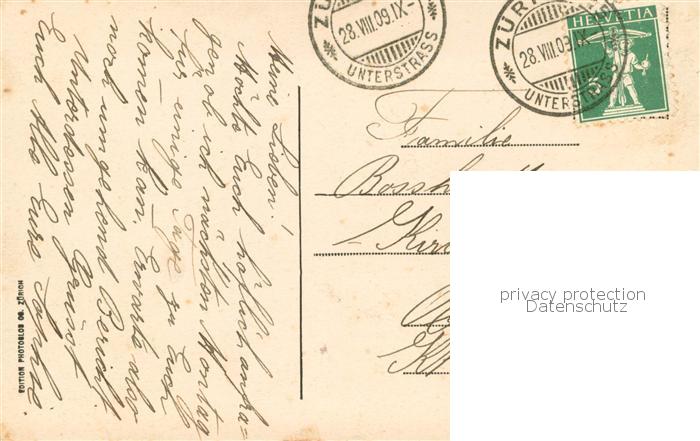 Meine Lieben!
Möchte Euch höflich anfra-
gen ob ich nächsten Montag
für einige Tage zu Euch
kommen kan. Erwarte also
noch umgehend Bericht
Unterdessen Grüsst
Euch Alle Eure Sophie.
EDITION PHOTOGLOB CO. ZÜRICH
28.VIII.09.IX-
UNTERSTRASS
ZÜRI
28.VIII.09.IX-
UNTERSTRASS
HELVETIA
5
Familie
Bossh
Kir
privacy protection
Datenschutz